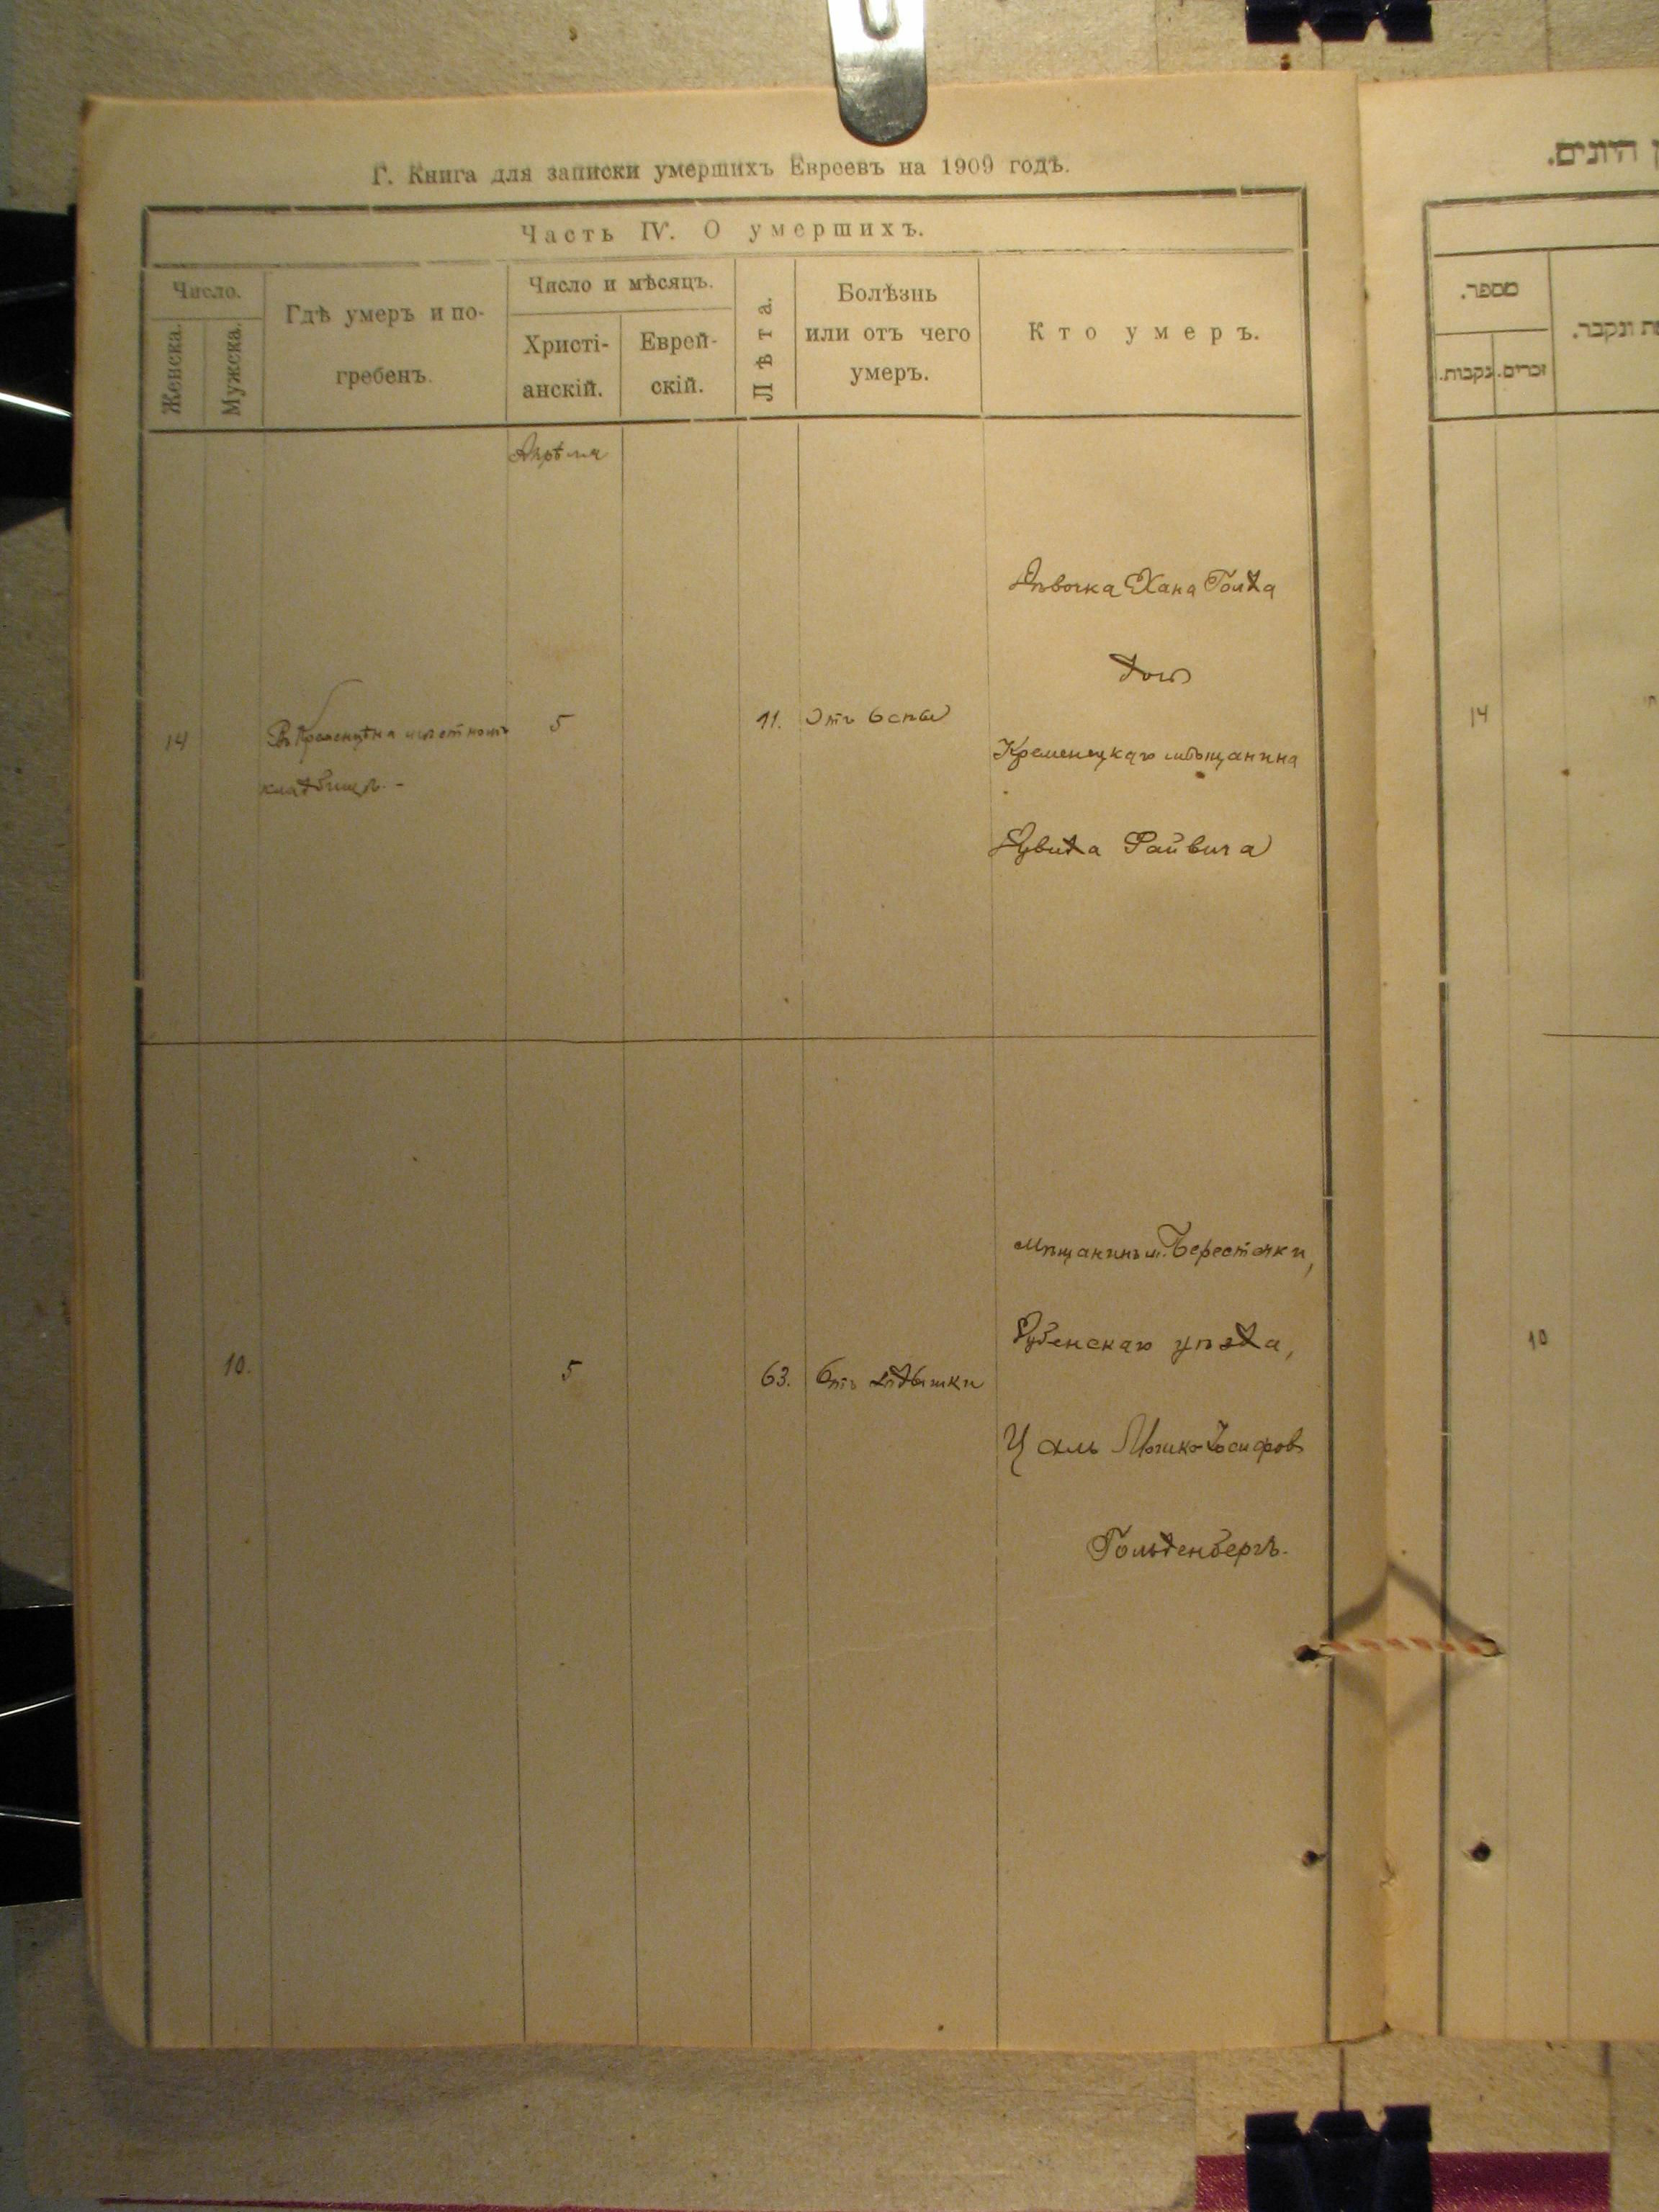 Г. Книга для записки умершихъ Евреевъ на 1909 годъ.
Часть IV. О умершихъ.
Число.
Женска.
Мужска.
Гдѣ умеръ и по-
гребенъ.
Число и мѣсяцъ.
Христі-
анскій.
Еврей-
скій.
Лѣта.
Болѣзнь
или отъ чего
умеръ.
Кто умеръ.
Апрѣля
14
Въ Кременцѣ на мѣстномъ
кладбищѣ. -
5
11.
Отъ оспы
Дѣвочка Хана Голда
дочь
Кременецкаго мѣщанина
Дувида Райвича
10.
5
63.
Отъ одышки
Мѣщанинъ м. Берестечки,
Дубенскаго уѣзда,
Мошко-Іосифов
Гольденбергъ.
היונים.
מספר.
נקבות.
זכרים.
ונקבר.
14
10